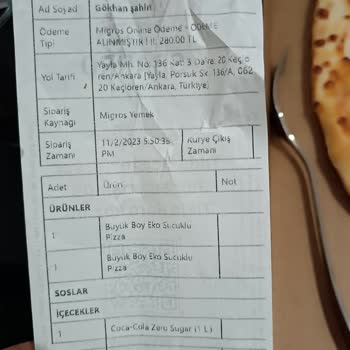 Ad Soyad Gökhan şahin
Ödeme Tipi Migros Online Ödeme - ÖDEME
ALINMIŞTIR ! TL 280.00 TL
Yol Tarifi Yayla Mh. No: 136 Kat: 3 Daire: 20 Keçiö
ren/Ankara (Yayla, Porsuk Sk. 136/A, 062
20 Keçiören/Ankara, Türkiye)
Sipariş Kaynağı Migros Yemek
Sipariş Zamanı 11/2/2023 5:50:35 PM Kurye Çıkış Zamanı
Adet Ürün Not
ÜRÜNLER
1 Büyük Boy Eko Sucuklu
Pizza
1 Büyük Boy Eko Sucuklu
Pizza
SOSLAR
İÇECEKLER
1 Coca-Cola Zero Sugar (1 L)